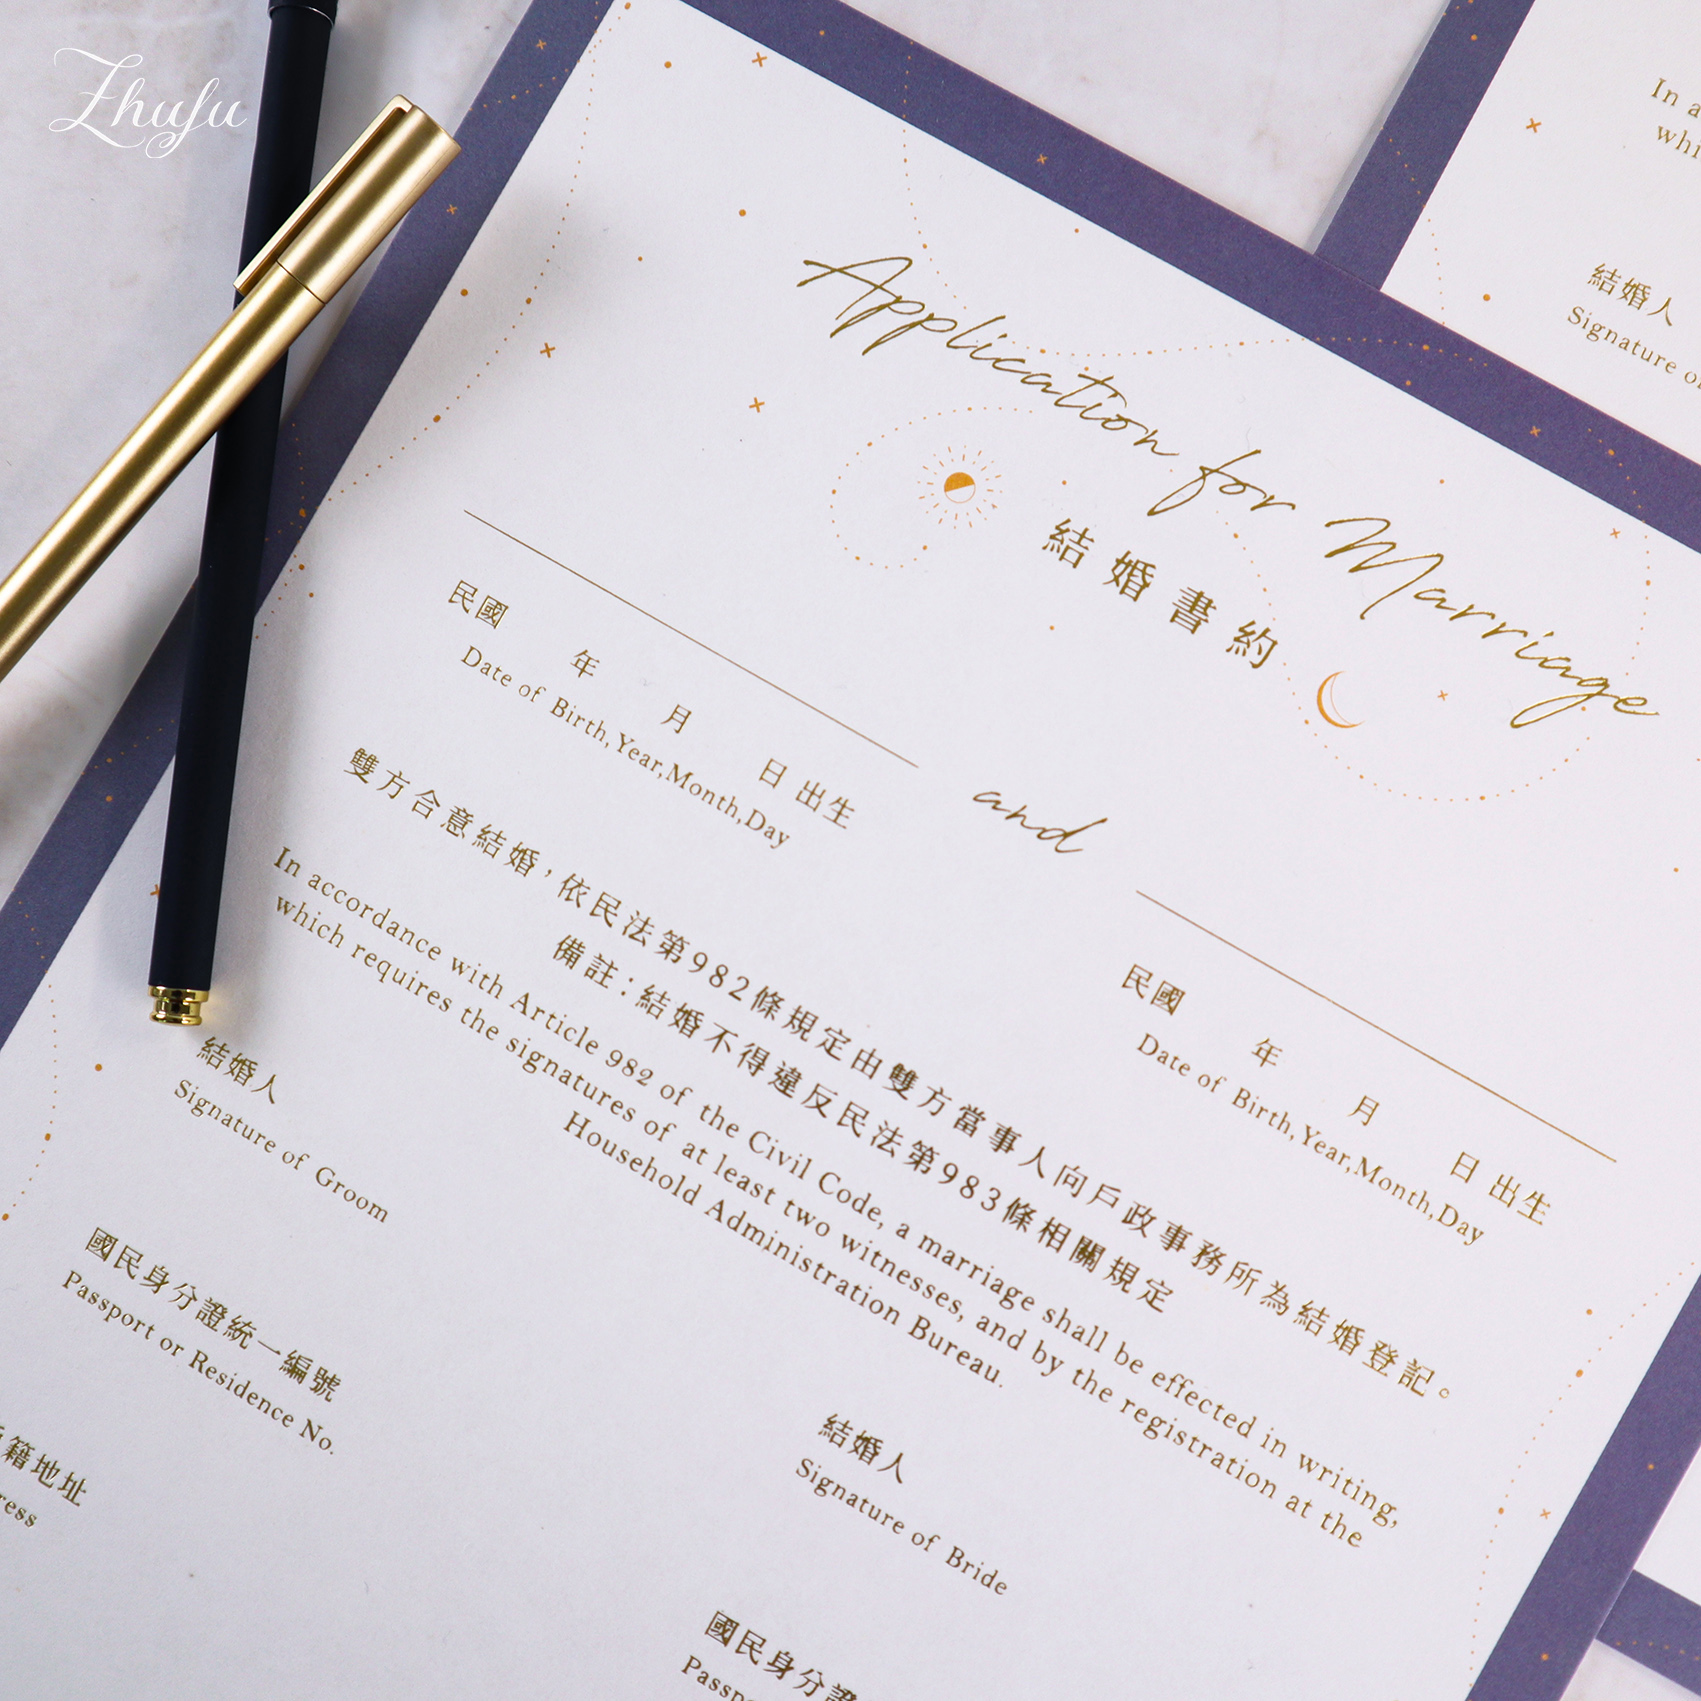 Zhufu
Application for Marriage
結婚書約
民國 年 月 日 出生
Date of Birth,Year,Month,Day
and
民國 年 月 日 出生
Date of Birth,Year,Month,Day
雙方合意結婚，依民法第982條規定由雙方當事人向戶政事務所為結婚登記。
備註：結婚不得違反民法第983條相關規定
In accordance with Article 982 of the Civil Code, a marriage shall be effected in writing,
which requires the signatures of at least two witnesses, and by the registration at the
Household Administration Bureau.
結婚人
Signature of Groom
國民身分證統一編號
Passport or Residence No.
籍地址
結婚人
Signature of Bride
國民身分證
In a
結婚人
Signature of